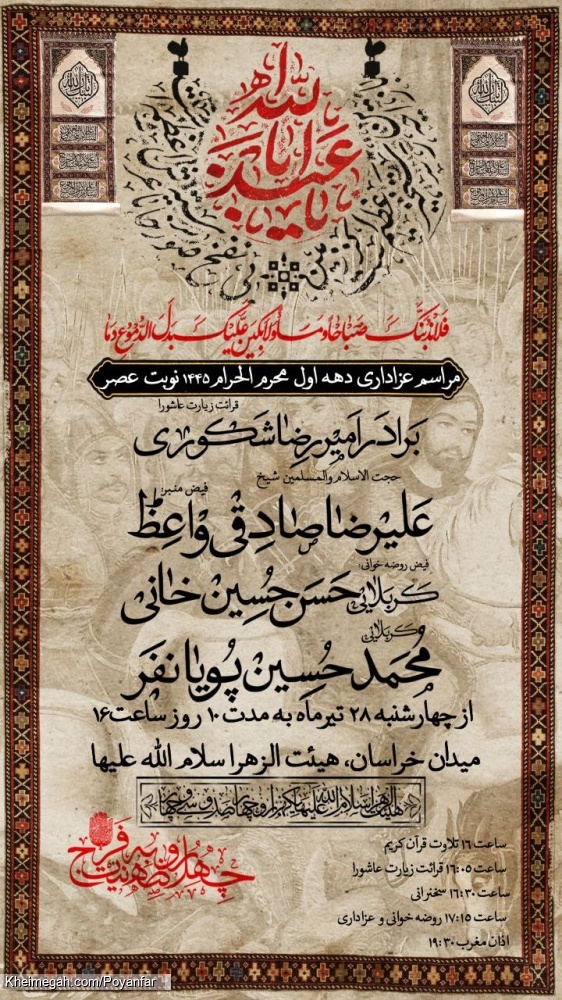 یا اباعبدالله
فلاندبنک صباحا و مساء و لابکین علیک بدل الدموع دما
مراسم عزاداری دهه اول محرم الحرام ۱۴۴۵ نوبت عصر
قرائت زیارت عاشورا
برادر امیررضا شکوری
حجت الاسلام والمسلمین شیخ
فیض منبر:
علیرضا صادقی واعظ
فیض روضه خوانی:
کربلایی حسن حسین خانی
و کربلایی
محمدحسین پویانفر
از چهارشنبه ۲۸ تیرماه به مدت ۱۰ روز ساعت ۱۶
میدان خراسان، هیئت الزهرا سلام الله علیها
هیئت الزهرا سلام الله علیها یکهزار و چهارصد و سی و چهار
ساعت ۱۶ تلاوت قرآن کریم
ساعت ۱۶:۰۵ قرائت زیارت عاشورا
ساعت ۱۶:۳۰ سخنرانی
ساعت ۱۷:۱۵ روضه خوانی و عزاداری
اذان مغرب ۱۹:۳۰
Kheimegah.com/Poyanfar